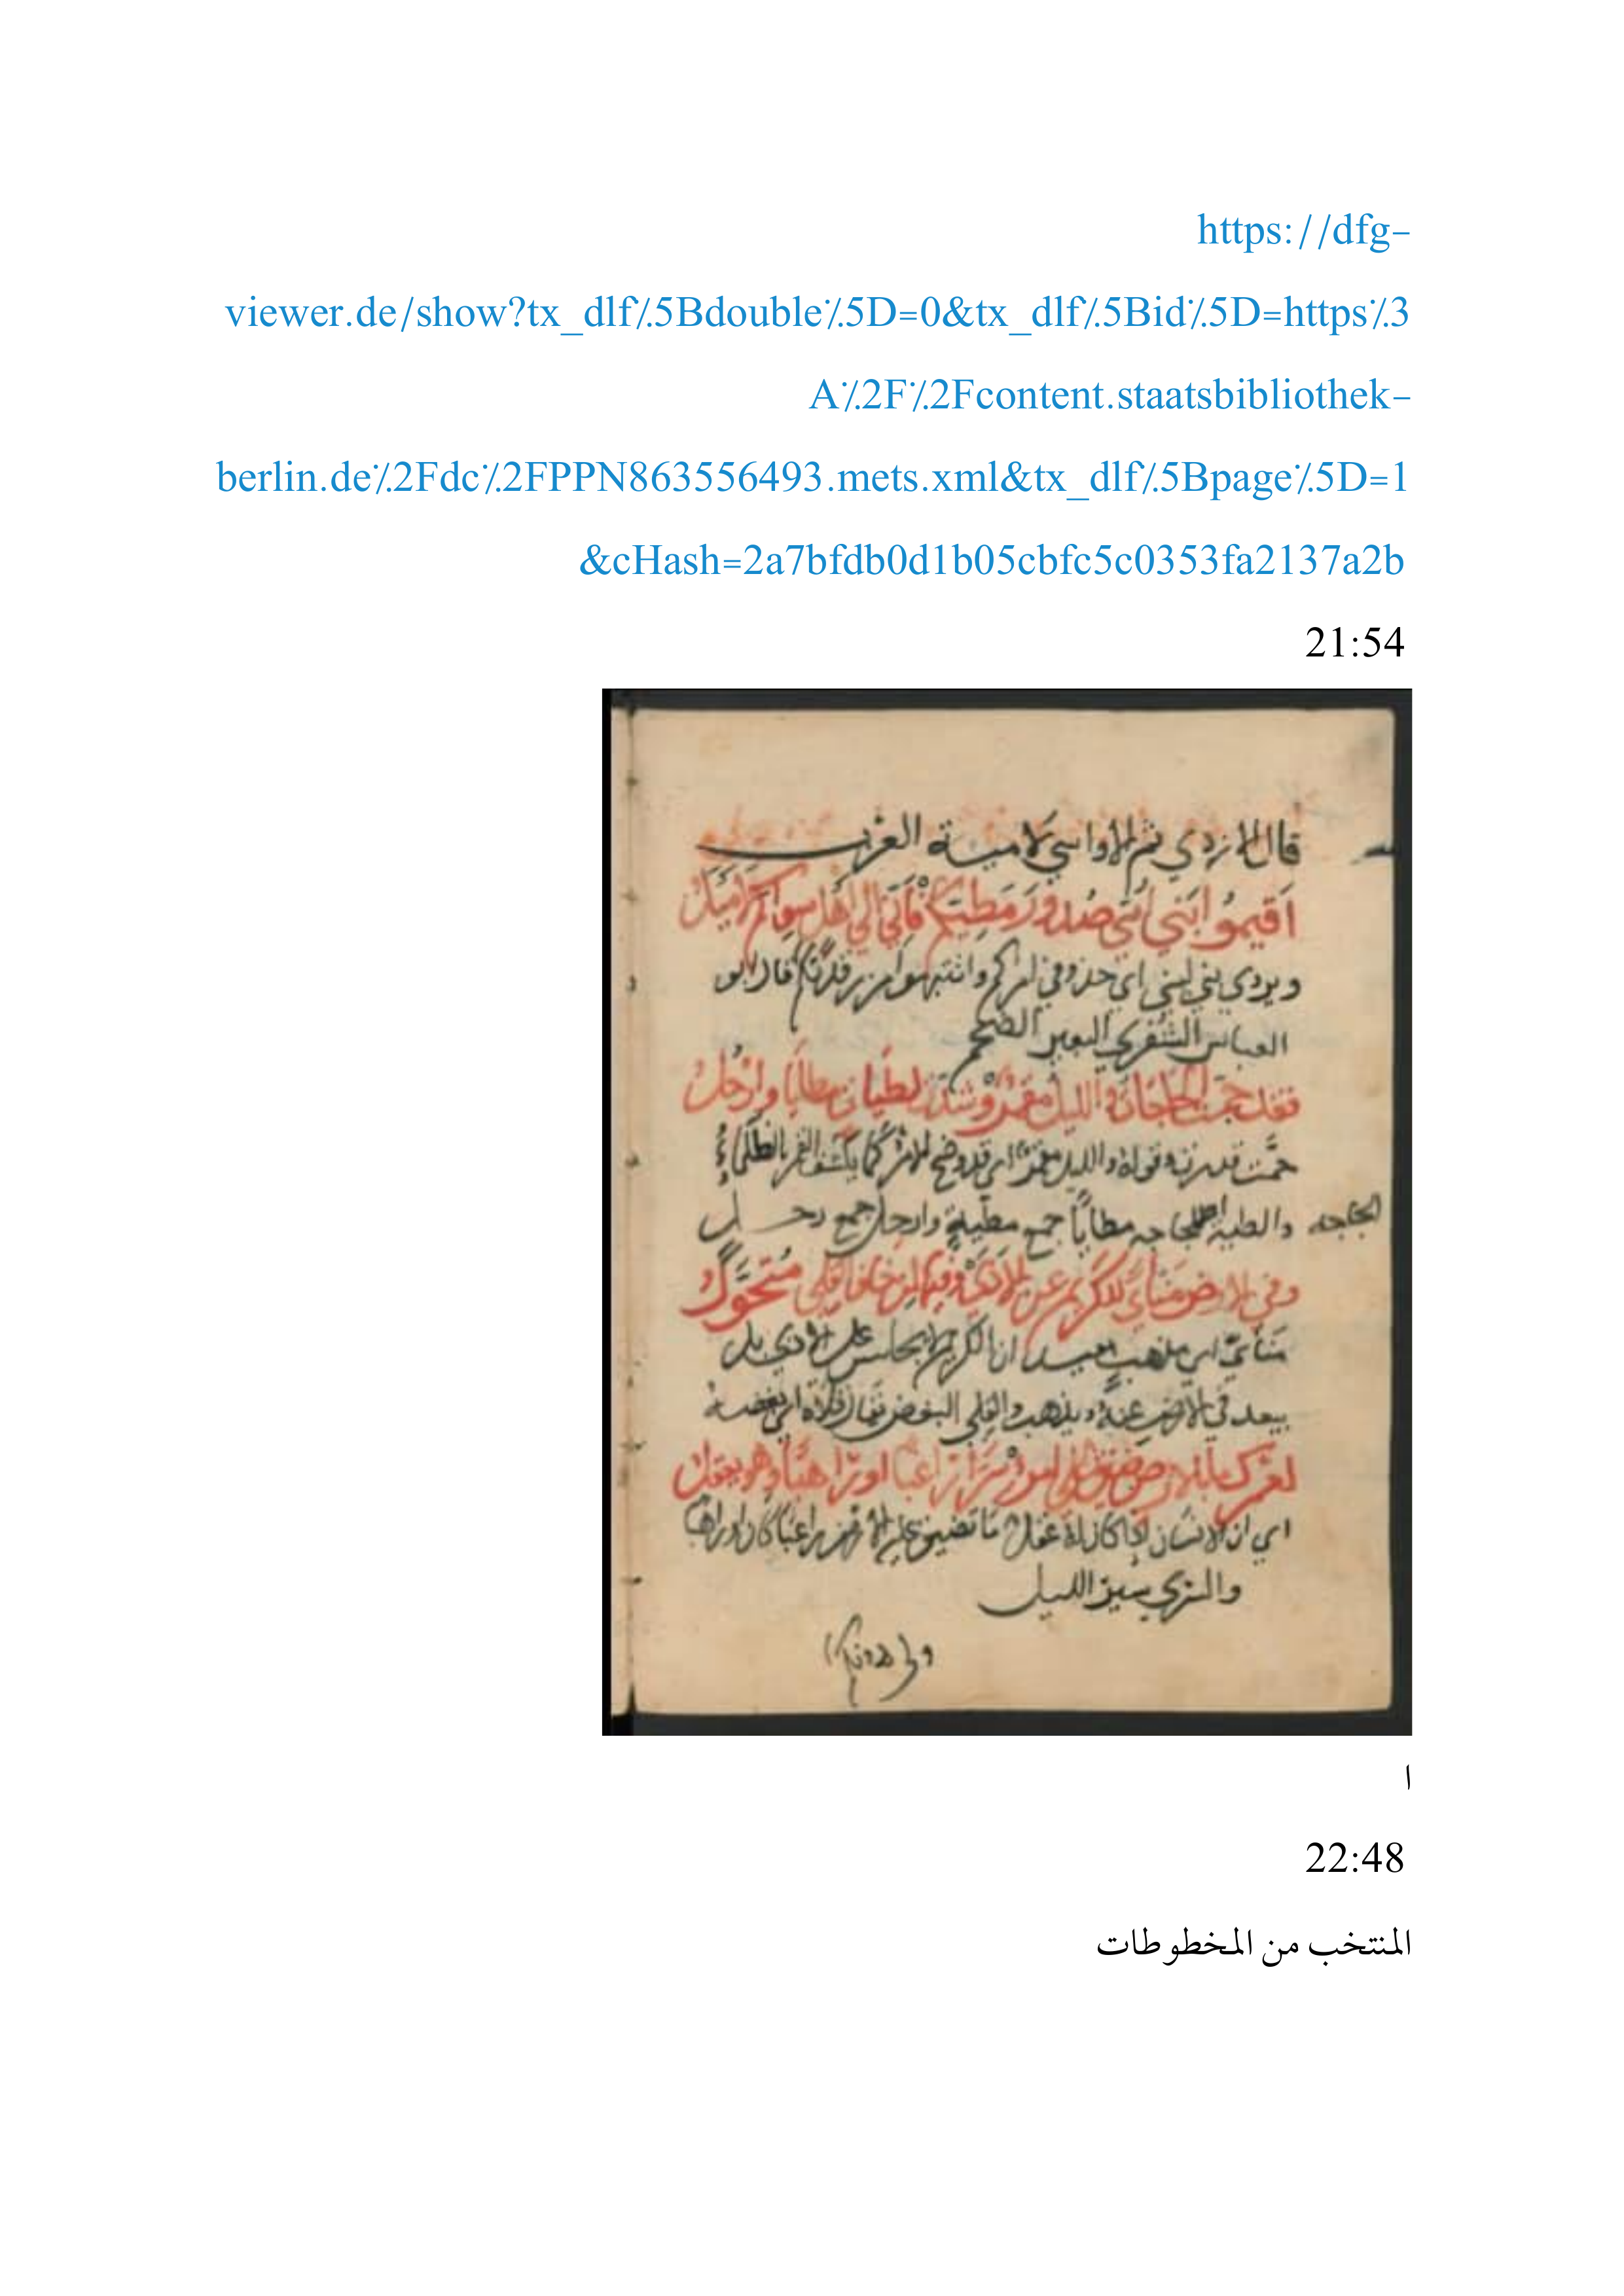 https://dfg-
viewer.de/show?tx_dlf٪5Bdouble٪5D=0&tx_dlf٪5Bid٪5D=https٪3
A٪2F٪2Fcontent.staatsbibliothek-
berlin.de٪2Fdc٪2FPPN863556493.mets.xml&tx_dlf٪5Bpage٪5D=1
&cHash=2a7bfdb0d1b05cbfc5c0353fa2137a2b
21:54
قال الازدي ثم الاواسي لامية العرب
اَقيمُوا بَني اُمّي صُدورَ مَطِيّكم فَاِنّي الي اَهْل سِواكم لَاَميَلُ
ويروي بني لبني اي خذوفي امركم وانتبهوا من رقدتكم قال ابو
العباس الشنفري البعير الضخم
فقد حمّت الحاجات والليل مقمرٌ وشدّت لطيات مطايا وارحُلُ
حمّت قدرت وقوله والليل مقمرٌ اي قد وضح الامر كما يكشف القمر الظلماءُ
الحاجه والطيه الحاجه مطايا جمع مطية وارحل جمع رحل
وفي الارض مَنْأيً للكريم عن الاذيَ وفيها لمن خاف القِلي مُتحَوَّلُ
مَنأيً اي مذهب بعيد ان الكريم لا يجلس علي الاذي بل
يبعد في الارض عنه ويذهب والقلي البغض يقال قلاه اي بغضه
لعَمْرك ما بالارض ضيق علي امرءٍ سَرَا راغبًا او راهبًا وهو يعقلُ
اي ان الانسان اذا كان له عقل ما تضيق عليه الارض راغبا كان او راهبا
والسري سير الليل
ولي دونكم
ا
22:48
المنتخب من المخطوطات